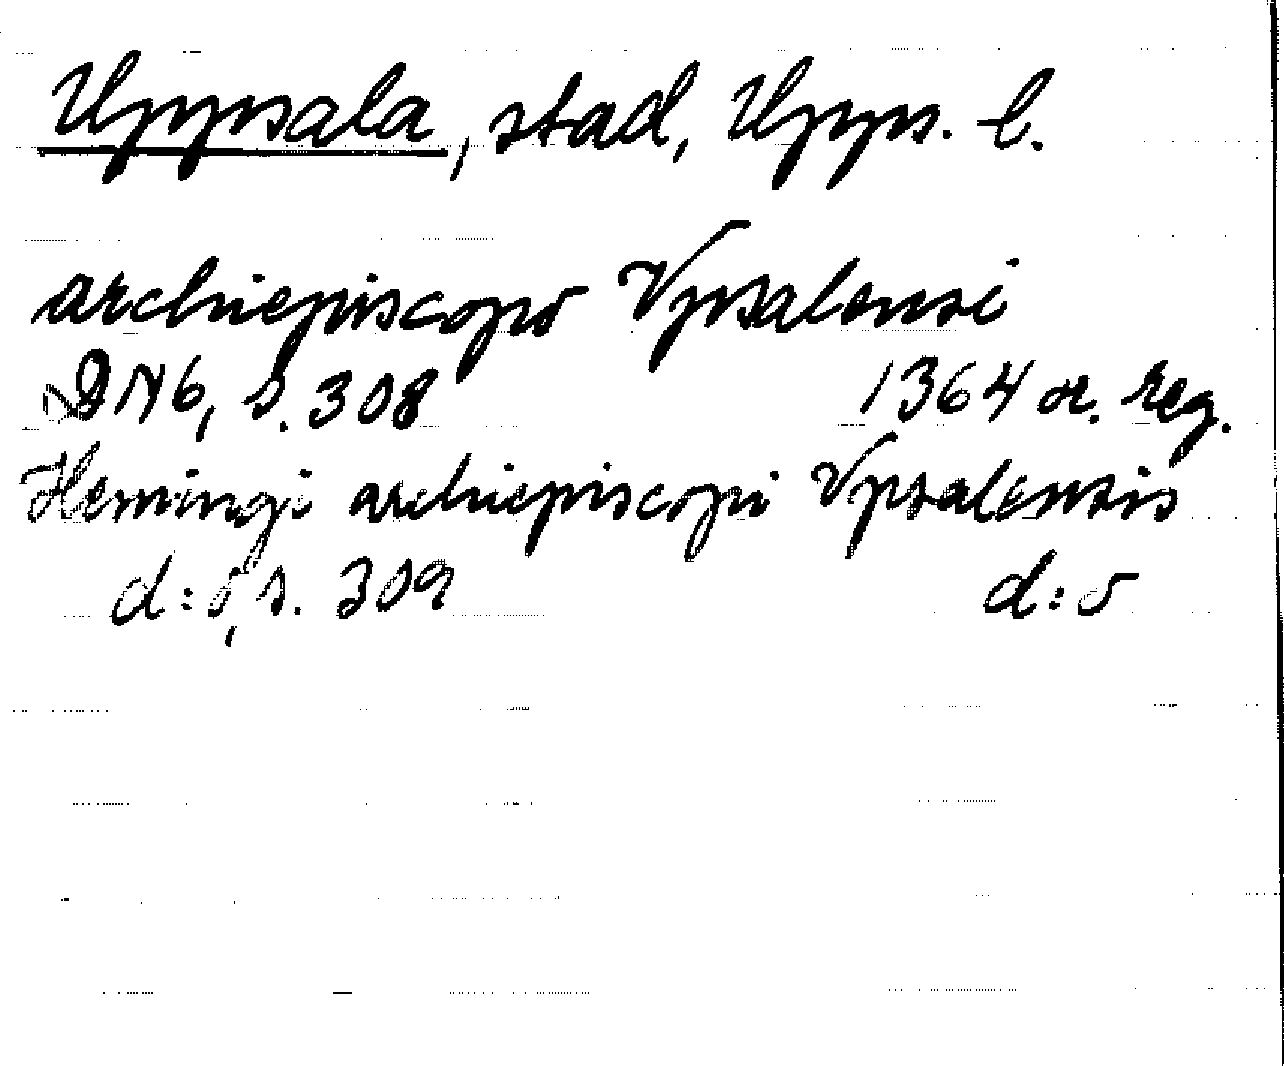 Uppsala, stad, Upps. l.
archiepiscopo Vpsalensi
DN 6, s. 308 1364 or. reg.
Hemingi archiepiscopi Vpsalensis
d:o, s. 309 d:o